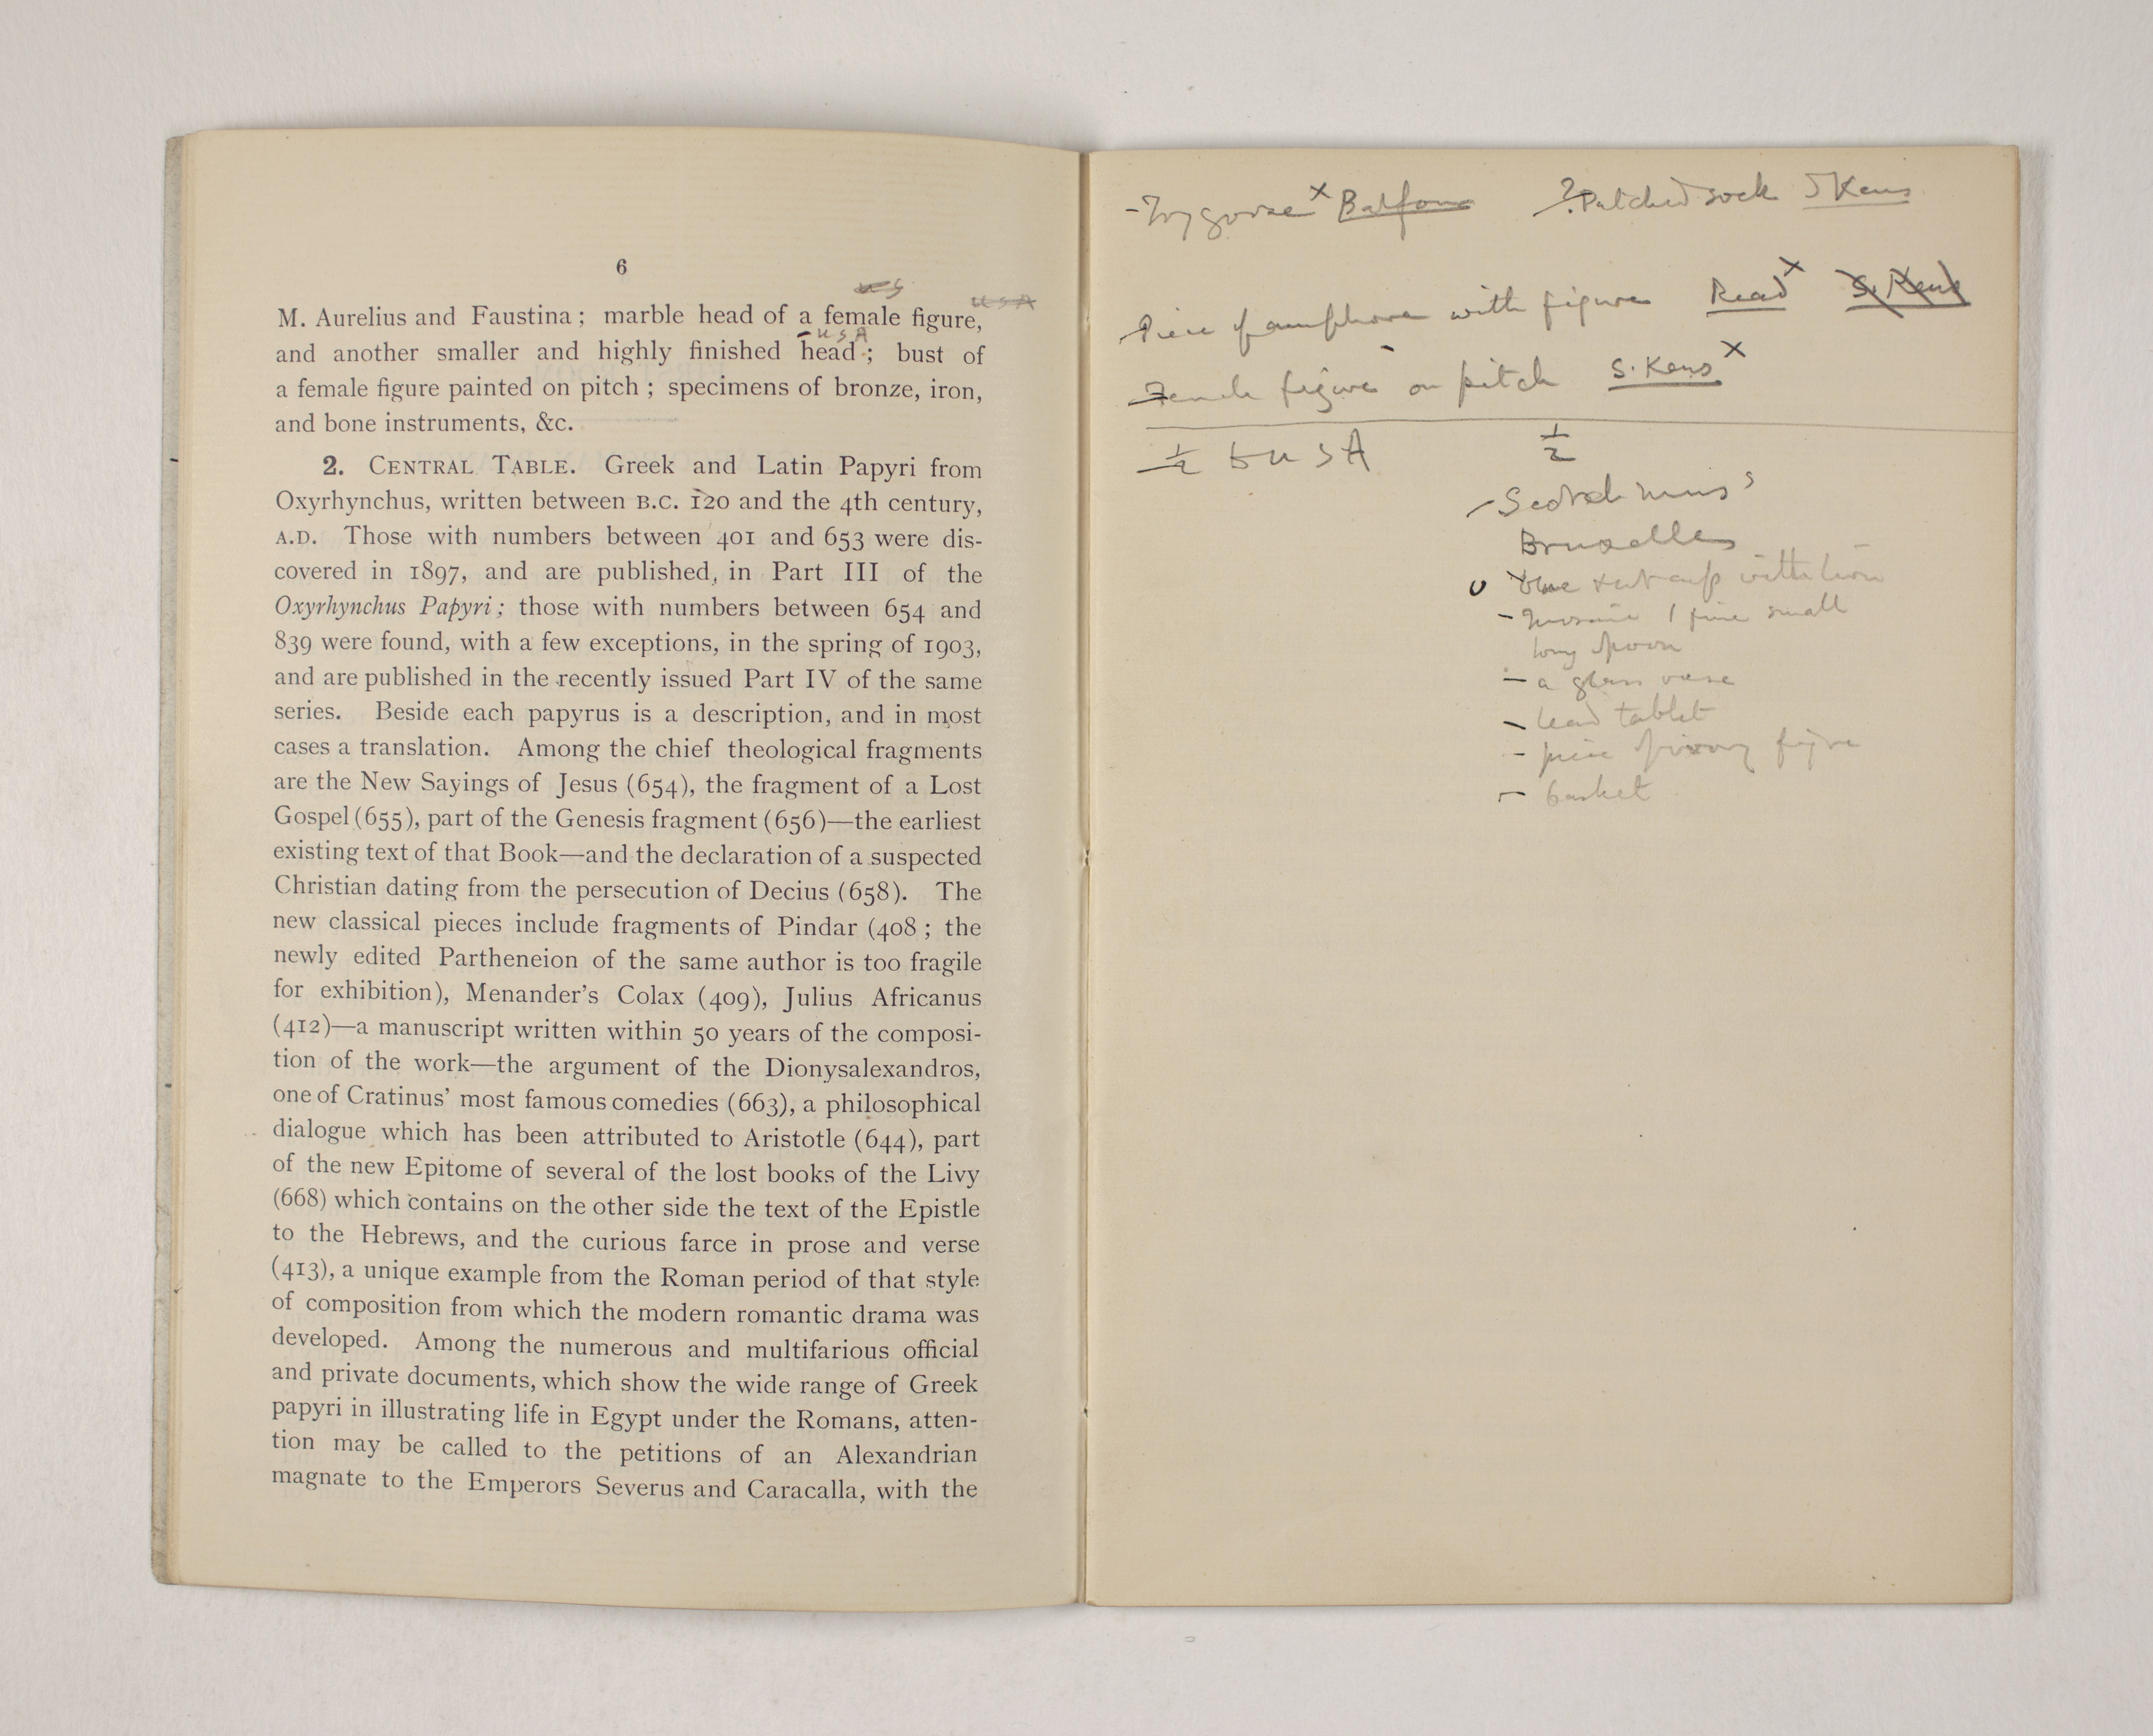 6
US
USA
M. Aurelius and Faustina; marble head of a female figure,
USA
and another smaller and highly finished head; bust of
a female figure painted on pitch; specimens of bronze, iron,
and bone instruments, &c.
2. CENTRAL TABLE. Greek and Latin Papyri from
Oxyrhynchus, written between B.C. 120 and the 4th century,
A.D. Those with numbers between 401 and 653 were dis-
covered in 1897, and are published, in Part III of the
Oxyrhynchus Papyri; those with numbers between 654 and
839 were found, with a few exceptions, in the spring of 1903,
and are published in the recently issued Part IV of the same
series. Beside each papyrus is a description, and in most
cases a translation. Among the chief theological fragments
are the New Sayings of Jesus (654), the fragment of a Lost
Gospel (655), part of the Genesis fragment (656)—the earliest
existing text of that Book—and the declaration of a suspected
Christian dating from the persecution of Decius (658). The
new classical pieces include fragments of Pindar (408; the
newly edited Partheneion of the same author is too fragile
for exhibition), Menander's Colax (409), Julius Africanus
(412)—a manuscript written within 50 years of the composi-
tion of the work—the argument of the Dionysalexandros,
one of Cratinus' most famous comedies (663), a philosophical
dialogue which has been attributed to Aristotle (644), part
of the new Epitome of several of the lost books of the Livy
(668) which contains on the other side the text of the Epistle
to the Hebrews, and the curious farce in prose and verse
(413), a unique example from the Roman period of that style
of composition from which the modern romantic drama was
developed. Among the numerous and multifarious official
and private documents, which show the wide range of Greek
papyri in illustrating life in Egypt under the Romans, atten-
tion may be called to the petitions of an Alexandrian
magnate to the Emperors Severus and Caracalla, with the
x Balfour ? Patched sock S Kens
Piece of amphora with figure Read x S. Kens
Female figure on pitch S. Kens x
1/2 USA 1/2
Bruxelles
blue cup with lion
1 fine small
spoon
- a glass vase
- lead tablet
- piece ivory figure
- basket